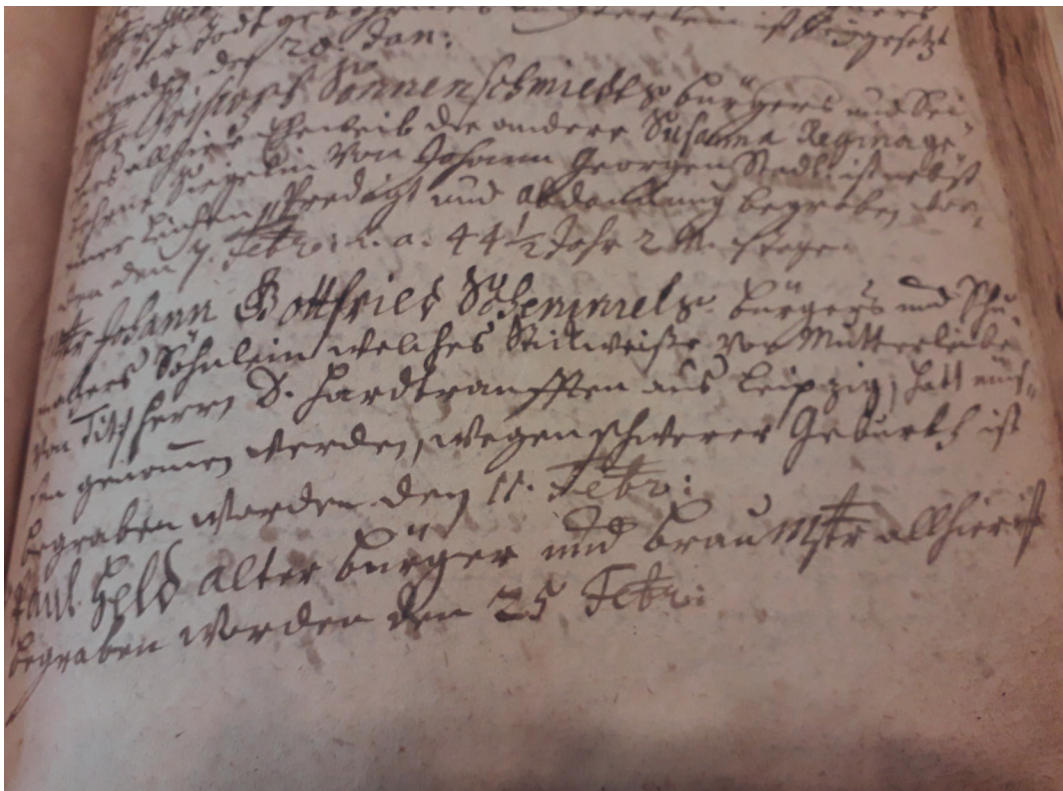 todt gebohrnes ist beygesetzt
worden den 28. Jan:
Mstr Christoph Sonnenschmiedts Bürgers und Sei-
lers allhier Eheweib die andere Susanna Regina ge-
bohrne Ziegelin von Johann Georgen Stedt: ist nebst
einer Leichen Predigt und Abdanckung begraben wor-
den den 7. Febr: æ. a. 44½ Jahr 2 M. Tage
Mstr Johann Gottfried Schemmels Bürgers und Schu-
machers Söhnlein welches Stückweiße von Mutterleibe
von Tit: Herrn D. Hardtranfften aus Leipzig, hatt müs-
sen genom̄en werden, wegen schwerer Geburth ist
begraben worden den 11. Febr:
Paul Held alter Bürger und BrauMstr allhier ist
begraben worden den 25 Febr: